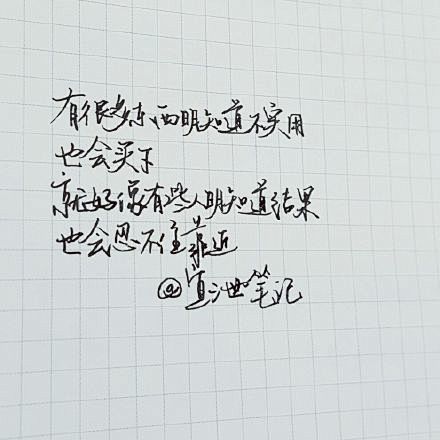 有很多东西明知道不实用
也会买下
就好像有些人明知道结果
也会忍不住靠近
@宣泄笔记